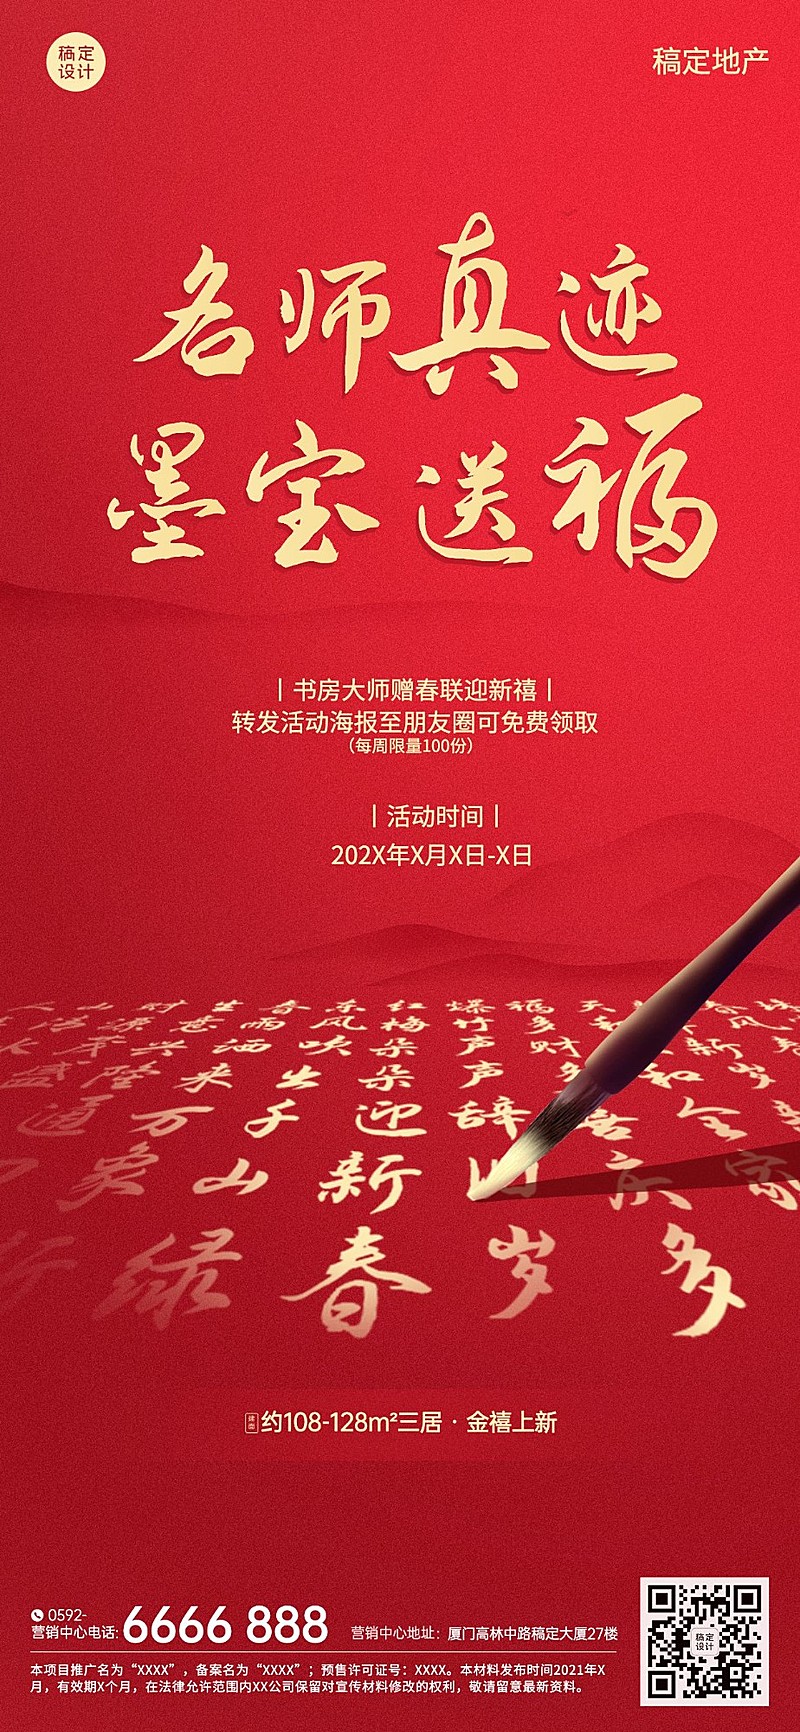 稿定
设计
稿定地产
名师真迹
墨宝送福
书房大师赠春联迎新禧
转发活动海报至朋友圈可免费领取
（每周限量100份）
活动时间
202X年X月X日-X日
山 财 生 春 东 红 爆 福 天
雨 风 梅 竹 多 和 风
兴 洒 吹 朵 声 财 新
盛 陞 来 生 朵 声 和 岁
通 万 千 迎 辞 喜 全
象 山 新 旧 庆 家
新 绿 春 岁 多
建面 约108-128m²三居 · 金禧上新
0592-
营销中心电话: 6666 888 营销中心地址：厦门高林中路稿定大厦27楼
稿定
设计
本项目推广名为“XXXX”，备案名为“XXXX”；预售许可证号：XXXX。本材料发布时间2021年X
月，有效期X个月，在法律允许范围内XX公司保留对宣传材料修改的权利，敬请留意最新资料。